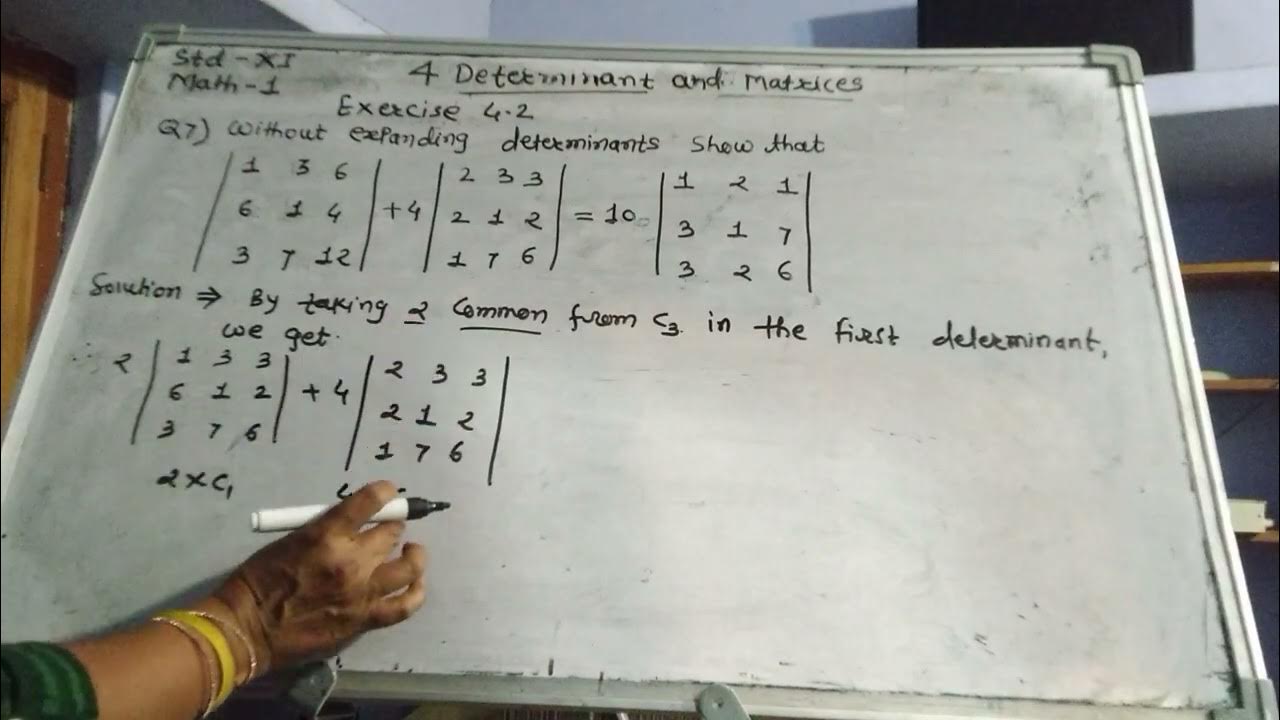 Std - XI
Math - 1
4 Determinant and Matrices
Exercise 4.2
Q7) Without expanding determinants show that
| 1 3 6 | | 2 3 3 | | 1 2 1 |
| 6 1 4 | + 4 | 2 1 2 | = 10 | 3 1 7 |
| 3 7 12 | | 1 7 6 | | 3 2 6 |
Solution ⇒ By taking 2 common from C3 in the first determinant,
we get.
∴ 2 | 1 3 3 | | 2 3 3 |
| 6 1 2 | + 4 | 2 1 2 |
| 3 7 6 | | 1 7 6 |
2 × C1